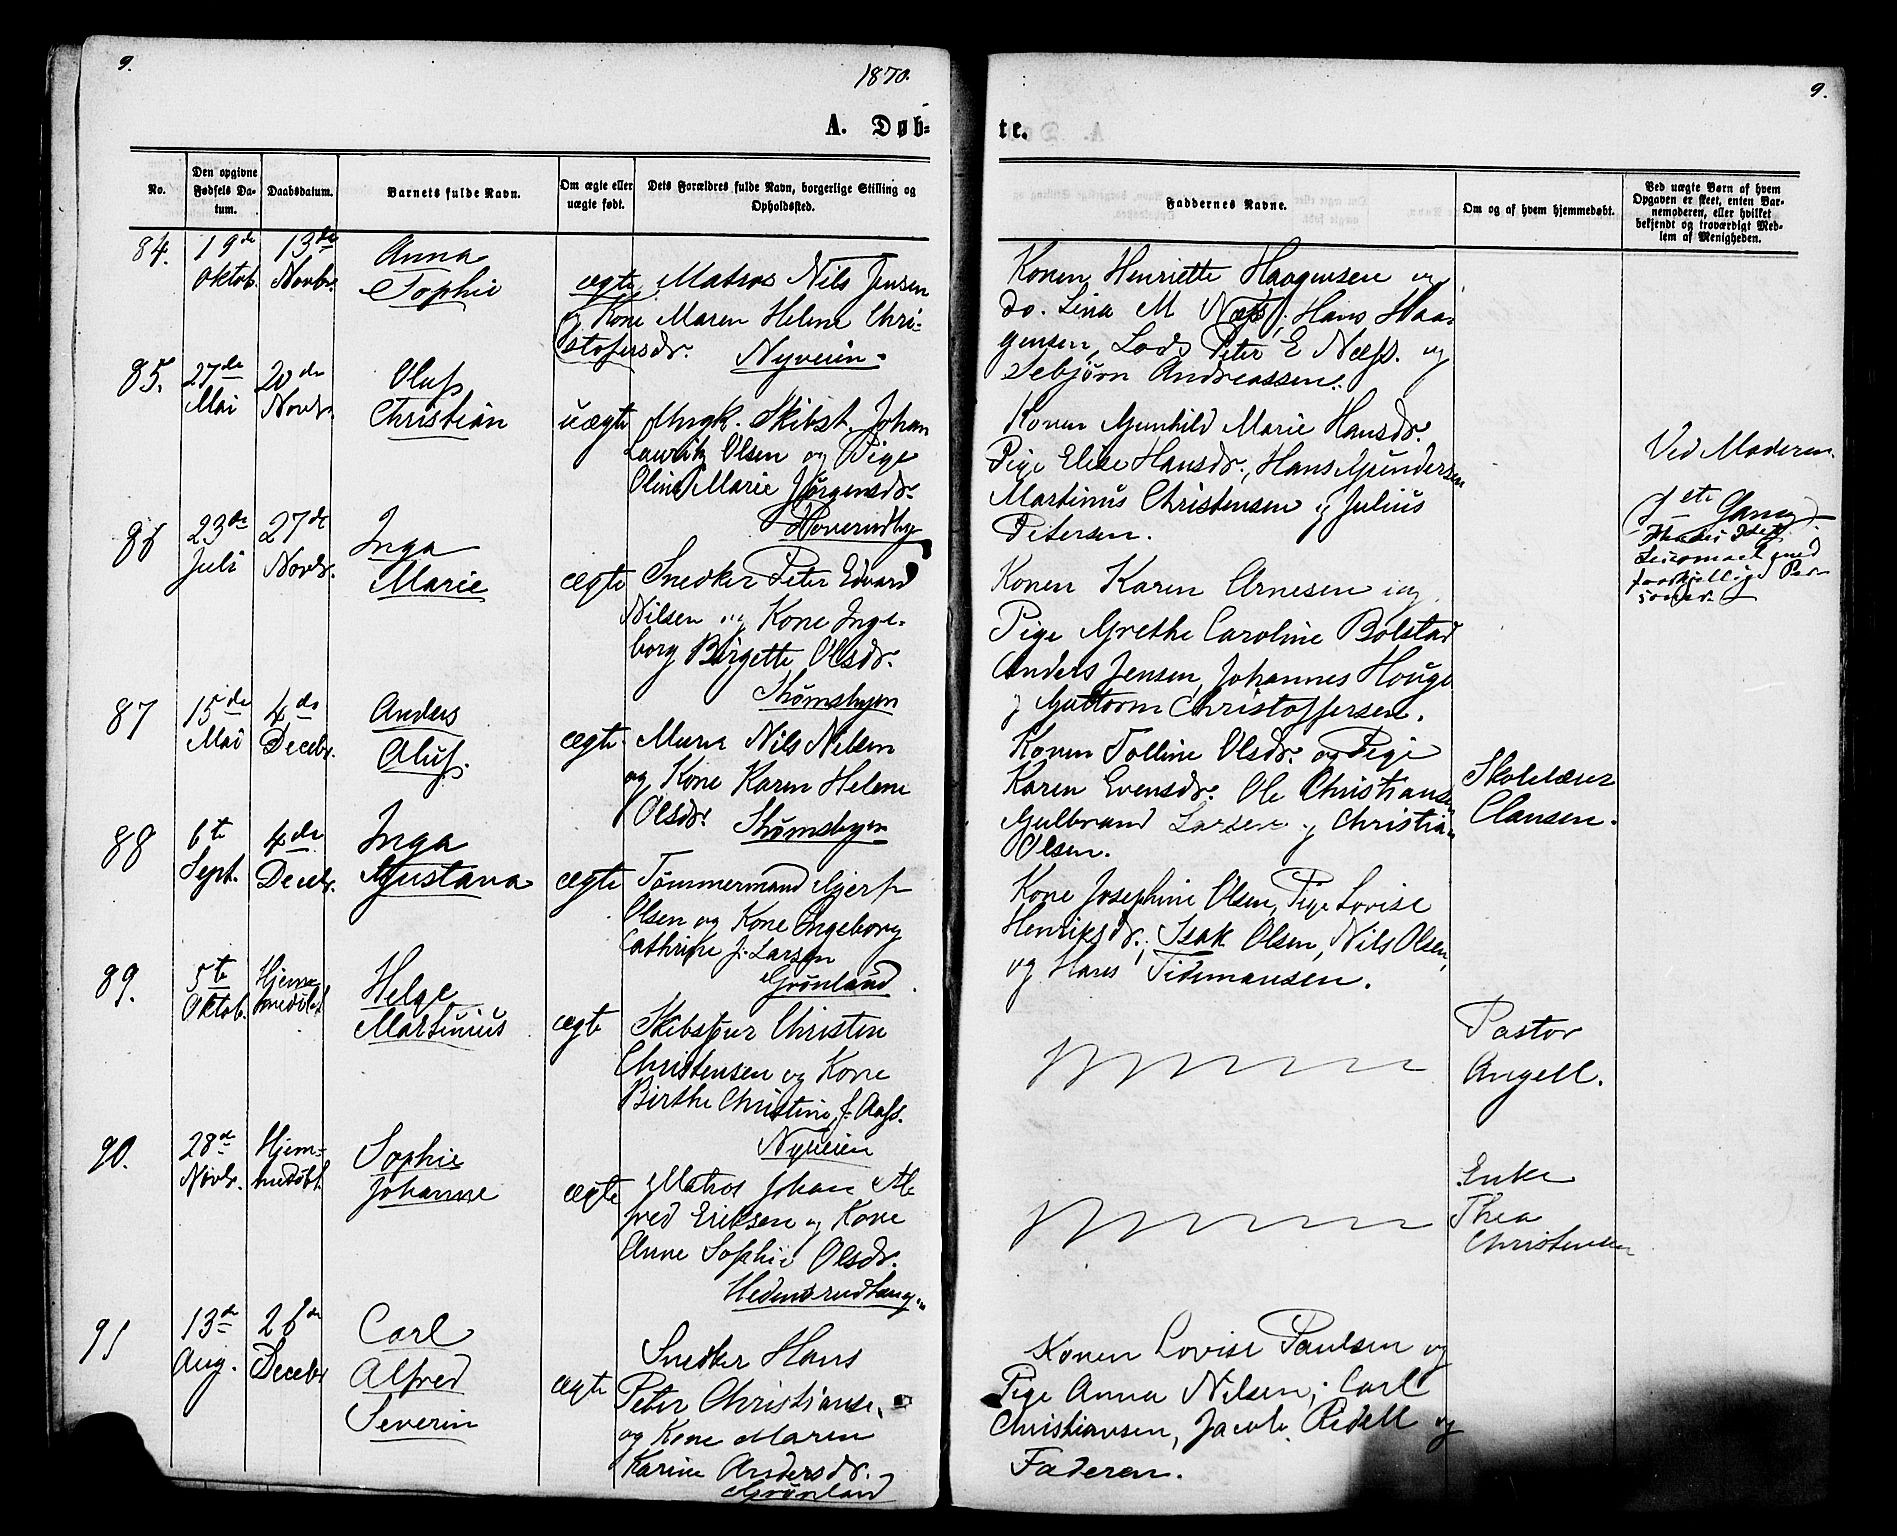 9.
1870.
A. Døb-
No.
Den opgivne Fødsels Da-tum.
Daabsdatum.
Barnets fulde Navn.
Om ægte eller uægte født.
Dets Forældres fulde Navn, borgerlige Stilling og Opholdssted.
84.
19de
Oktob.
13de
Novbr.
Anna
Sophie
ægte
Matros Nils Jensen
og Kone Maren Helene Chri-
stofersdr.
Nyveien.
85.
27de
Mai
20de
Novbr.
Oluf
Christian
uægte
Ungk. Skibst. Johan
Lauritz Olsen og Pige
Oline Marie Jørgensdr.
86
23de
Juli
27de
Novbr.
Inga
Marie
ægte
Snedker Peter Edvard
Nilsen og Kone Inge-
borg Birgette Olsdr.
Strømsbyen
87
15de
Mai
4de
Decebr.
Anders
Oluf.
ægte.
Murer Nils Nelsen
og Kone Karen Helene
Olsdr.
Strømsbyen
88
6te
Sept.
4de
Decebr.
Inga
Gustava
ægte
Tømmermand
Olsen og Kone Ingeborg
Cathrine f. Larsen
Grønland.
89.
5te
Oktob.
Hjemme
døbt
Helge
Martinius
ægte
Christen
Christensen og Kone
Birthe Christine f. Aass.
Nyveien
90.
28de
Novbr.
Hjem-
medøbt.
Sophie
Johanne
ægte
Matros Johan Al-
fred Eriksen og Kone
Anne Sophie Olsdr.
91
13de
Aug.
26de
Decebr
Carl
Alfred
Severin
ægte
Snedker Hans
Peter Christianse.
og Kone Maren
Karine Andersdr.
Grønland
9.
te.
Faddernes Navne.
Om og af hvem hjemmedøbt.
Ved uægte Børn af hvem Opgaven er skeet, enten Bar-nemoderen, eller hvilket bekjendt og troværdigt Med-lem af Menigheden.
Konen Henriette Haagensen og
do. Lina M Næss; Hans Haa-
gensen, Lods Peter E Næss. og
Sebjørn Andreassen.
Konen Gunhild Marie Hansdr.
Pige Elise Hansdr., Hans Gundersen
Martinus Christensen og Julius
Petersen.
Ved Moderen.
Konen Karen Arnesen og
Pige Grethe Caroline Bolstad
Anders Jensen, Johannes Houge
og Guttorm Christoffersen.
Konen Tolline Olsdr. og Pige
Karen Evensdr. Ole Christiansen
Gulbrand Larsen og Christian
Olsen.
Skolelærer
Clausen.
Kone Josephine Olsen, Pige Lovise
Henriksdr.; Isak Olsen, Nils Olsen,
og Hans Tidemansen.
Pastor
Angell.
Enke
Thea
Christensen
Konen Lovise Paulsen og
Pige Anna Nilsen; Carl
Christiansen, Jacob Ridell og
Faderen.